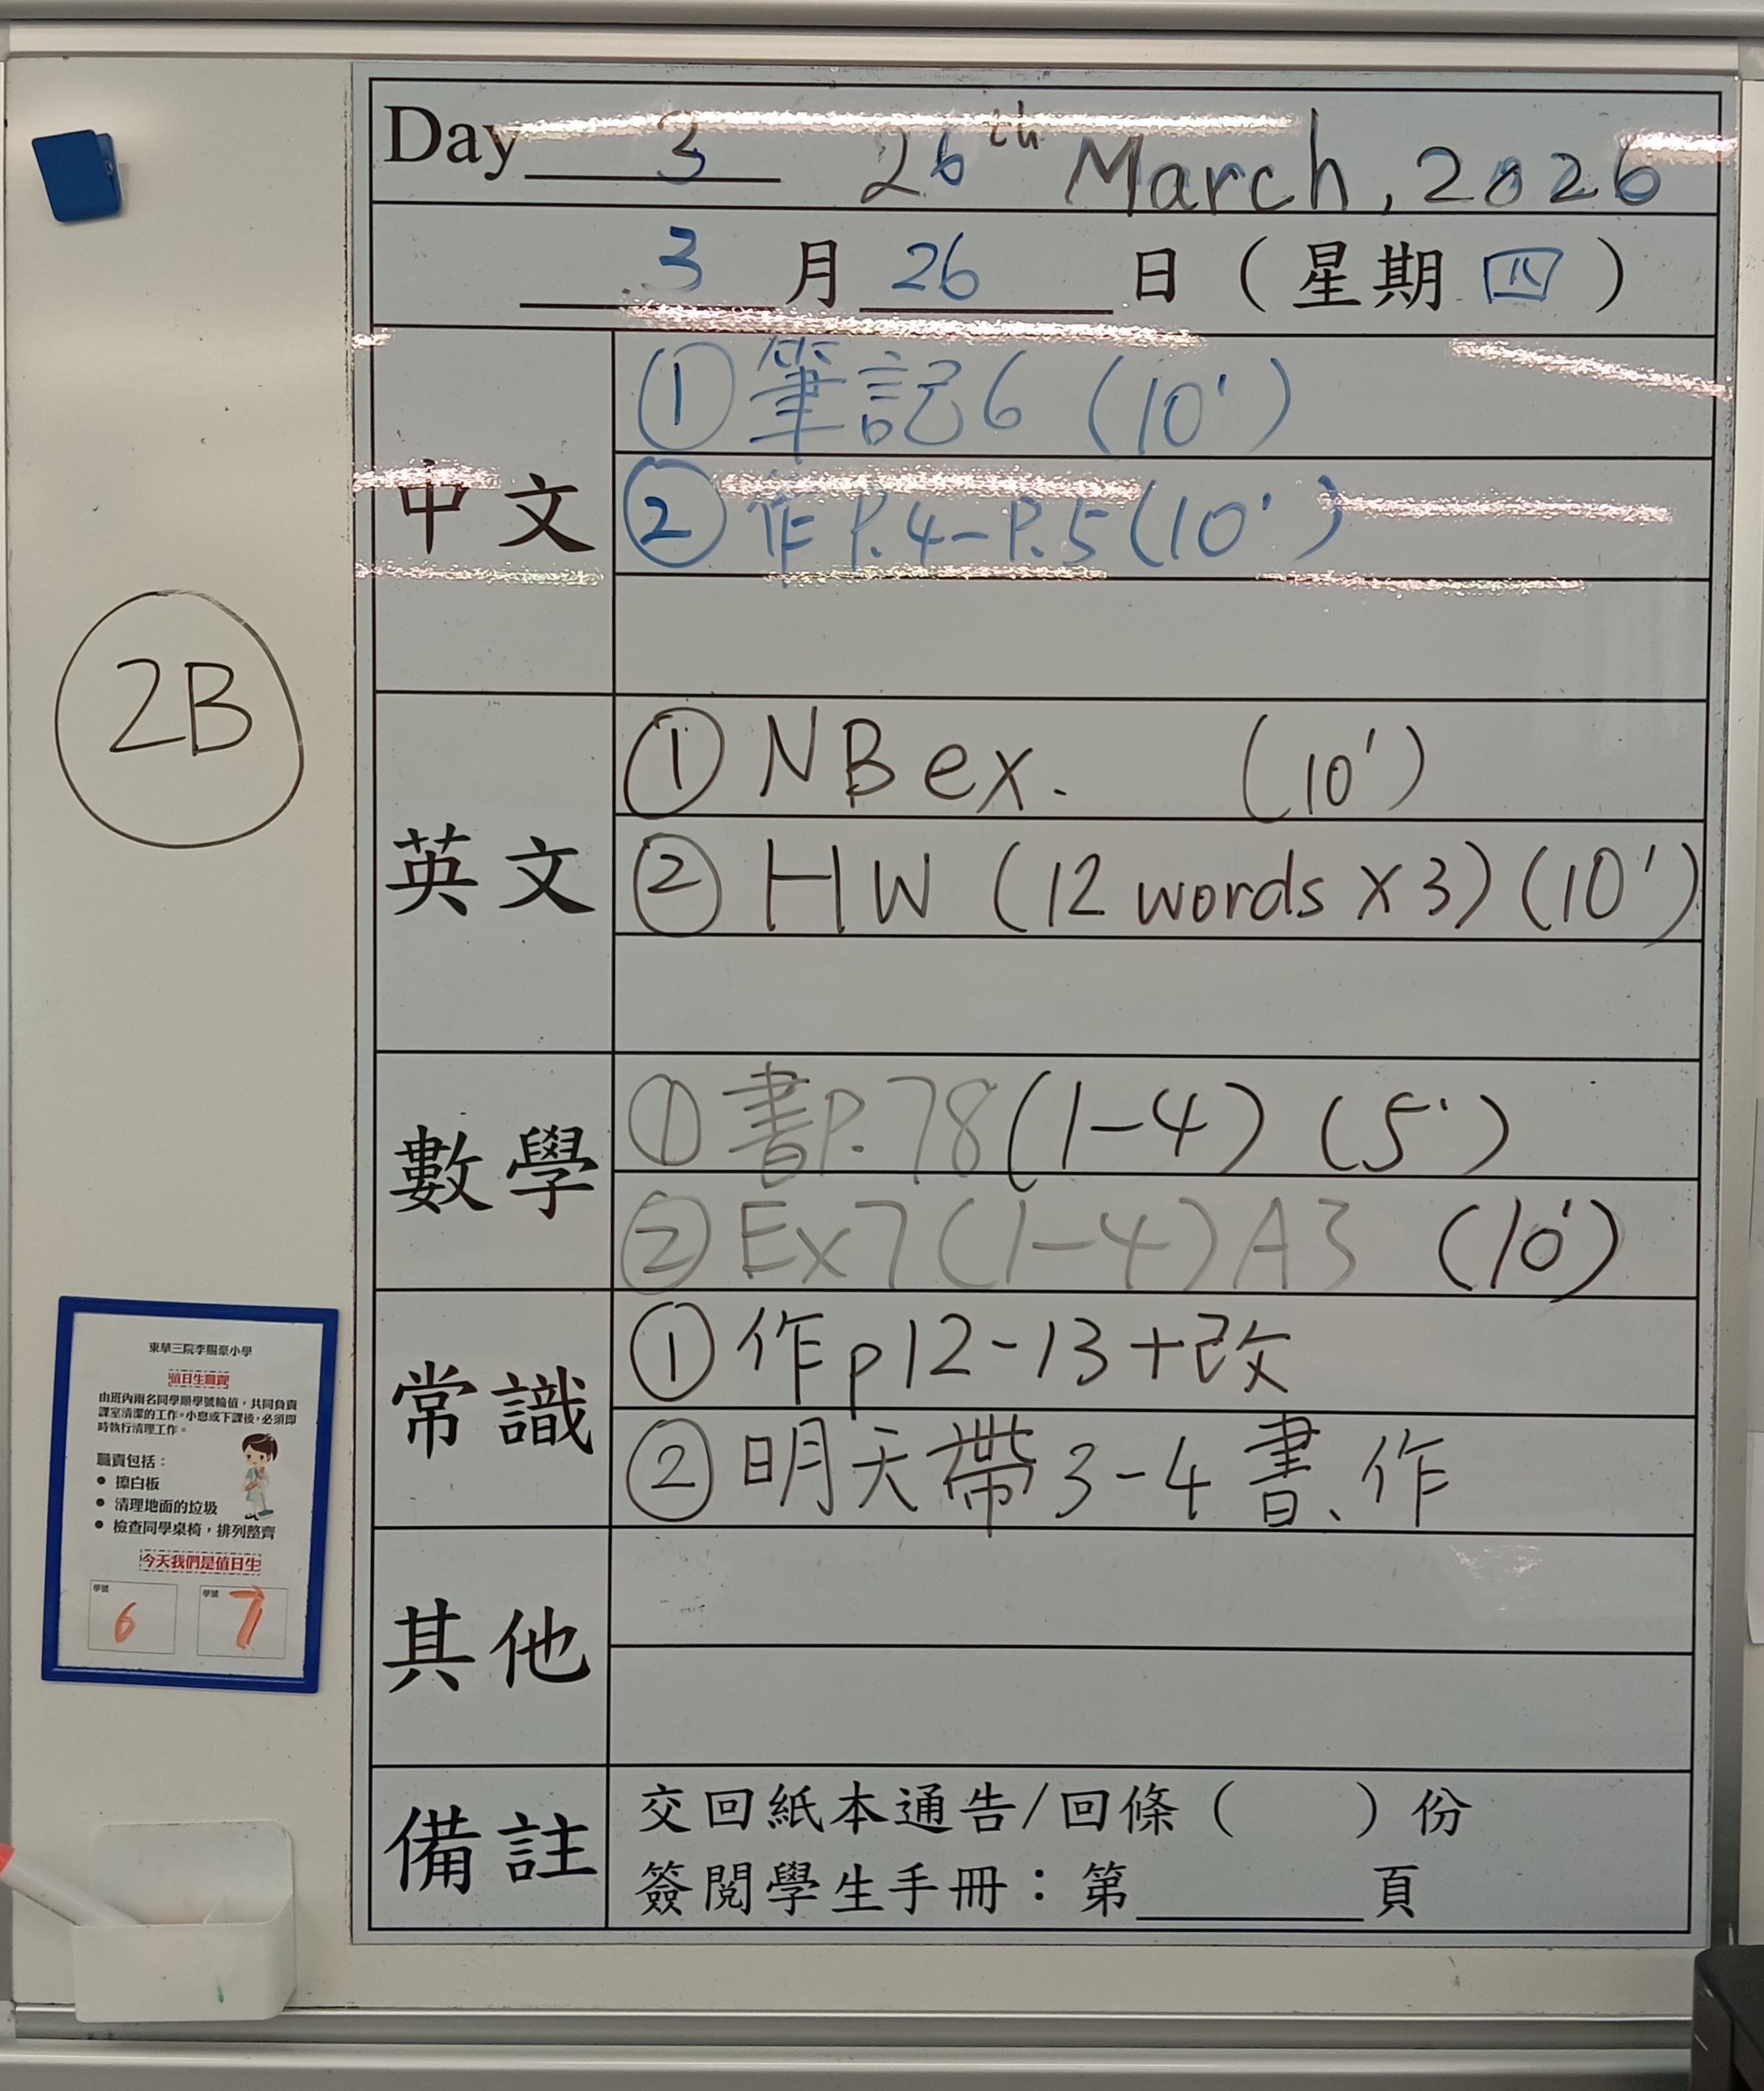 Day 3 26th March, 2026
3 月 26 日 ( 星期 四 )
中文
① 筆記6 (10')
② 作 P.4-P.5 (10')
2B
英文
① NB ex. (10')
② HW (12 words x 3) (10')
數學
① 書P.78 (1-4) (5')
② Ex7 (1-4) A3 (10')
常識
① 作p12-13+改
② 明天帶3-4書、作
其他
備註
交回紙本通告/回條 ( ) 份
簽閱學生手冊：第______頁
東華三院李賜豪小學
值日生職責
由班內兩名同學順學號輪值，共同負責
課室清潔的工作。小息或下課後，必須即
時執行清理工作。
職責包括：
● 擦白板
● 清理地面的垃圾
● 檢查同學桌椅，排列整齊
今天我們是值日生
學號 6 學號 7